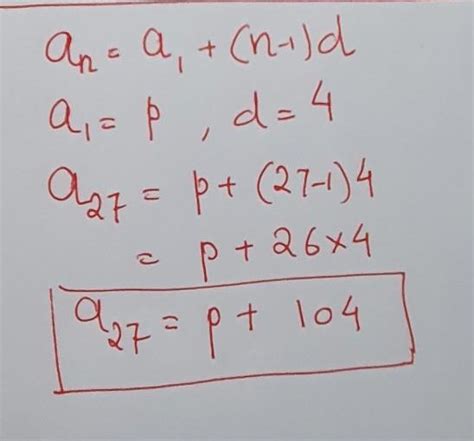 aₙ = a₁ + (n-1)d
a₁ = p , d = 4
a₂₇ = p + (27-1)4
= p + 26×4
a₂₇ = p + 104